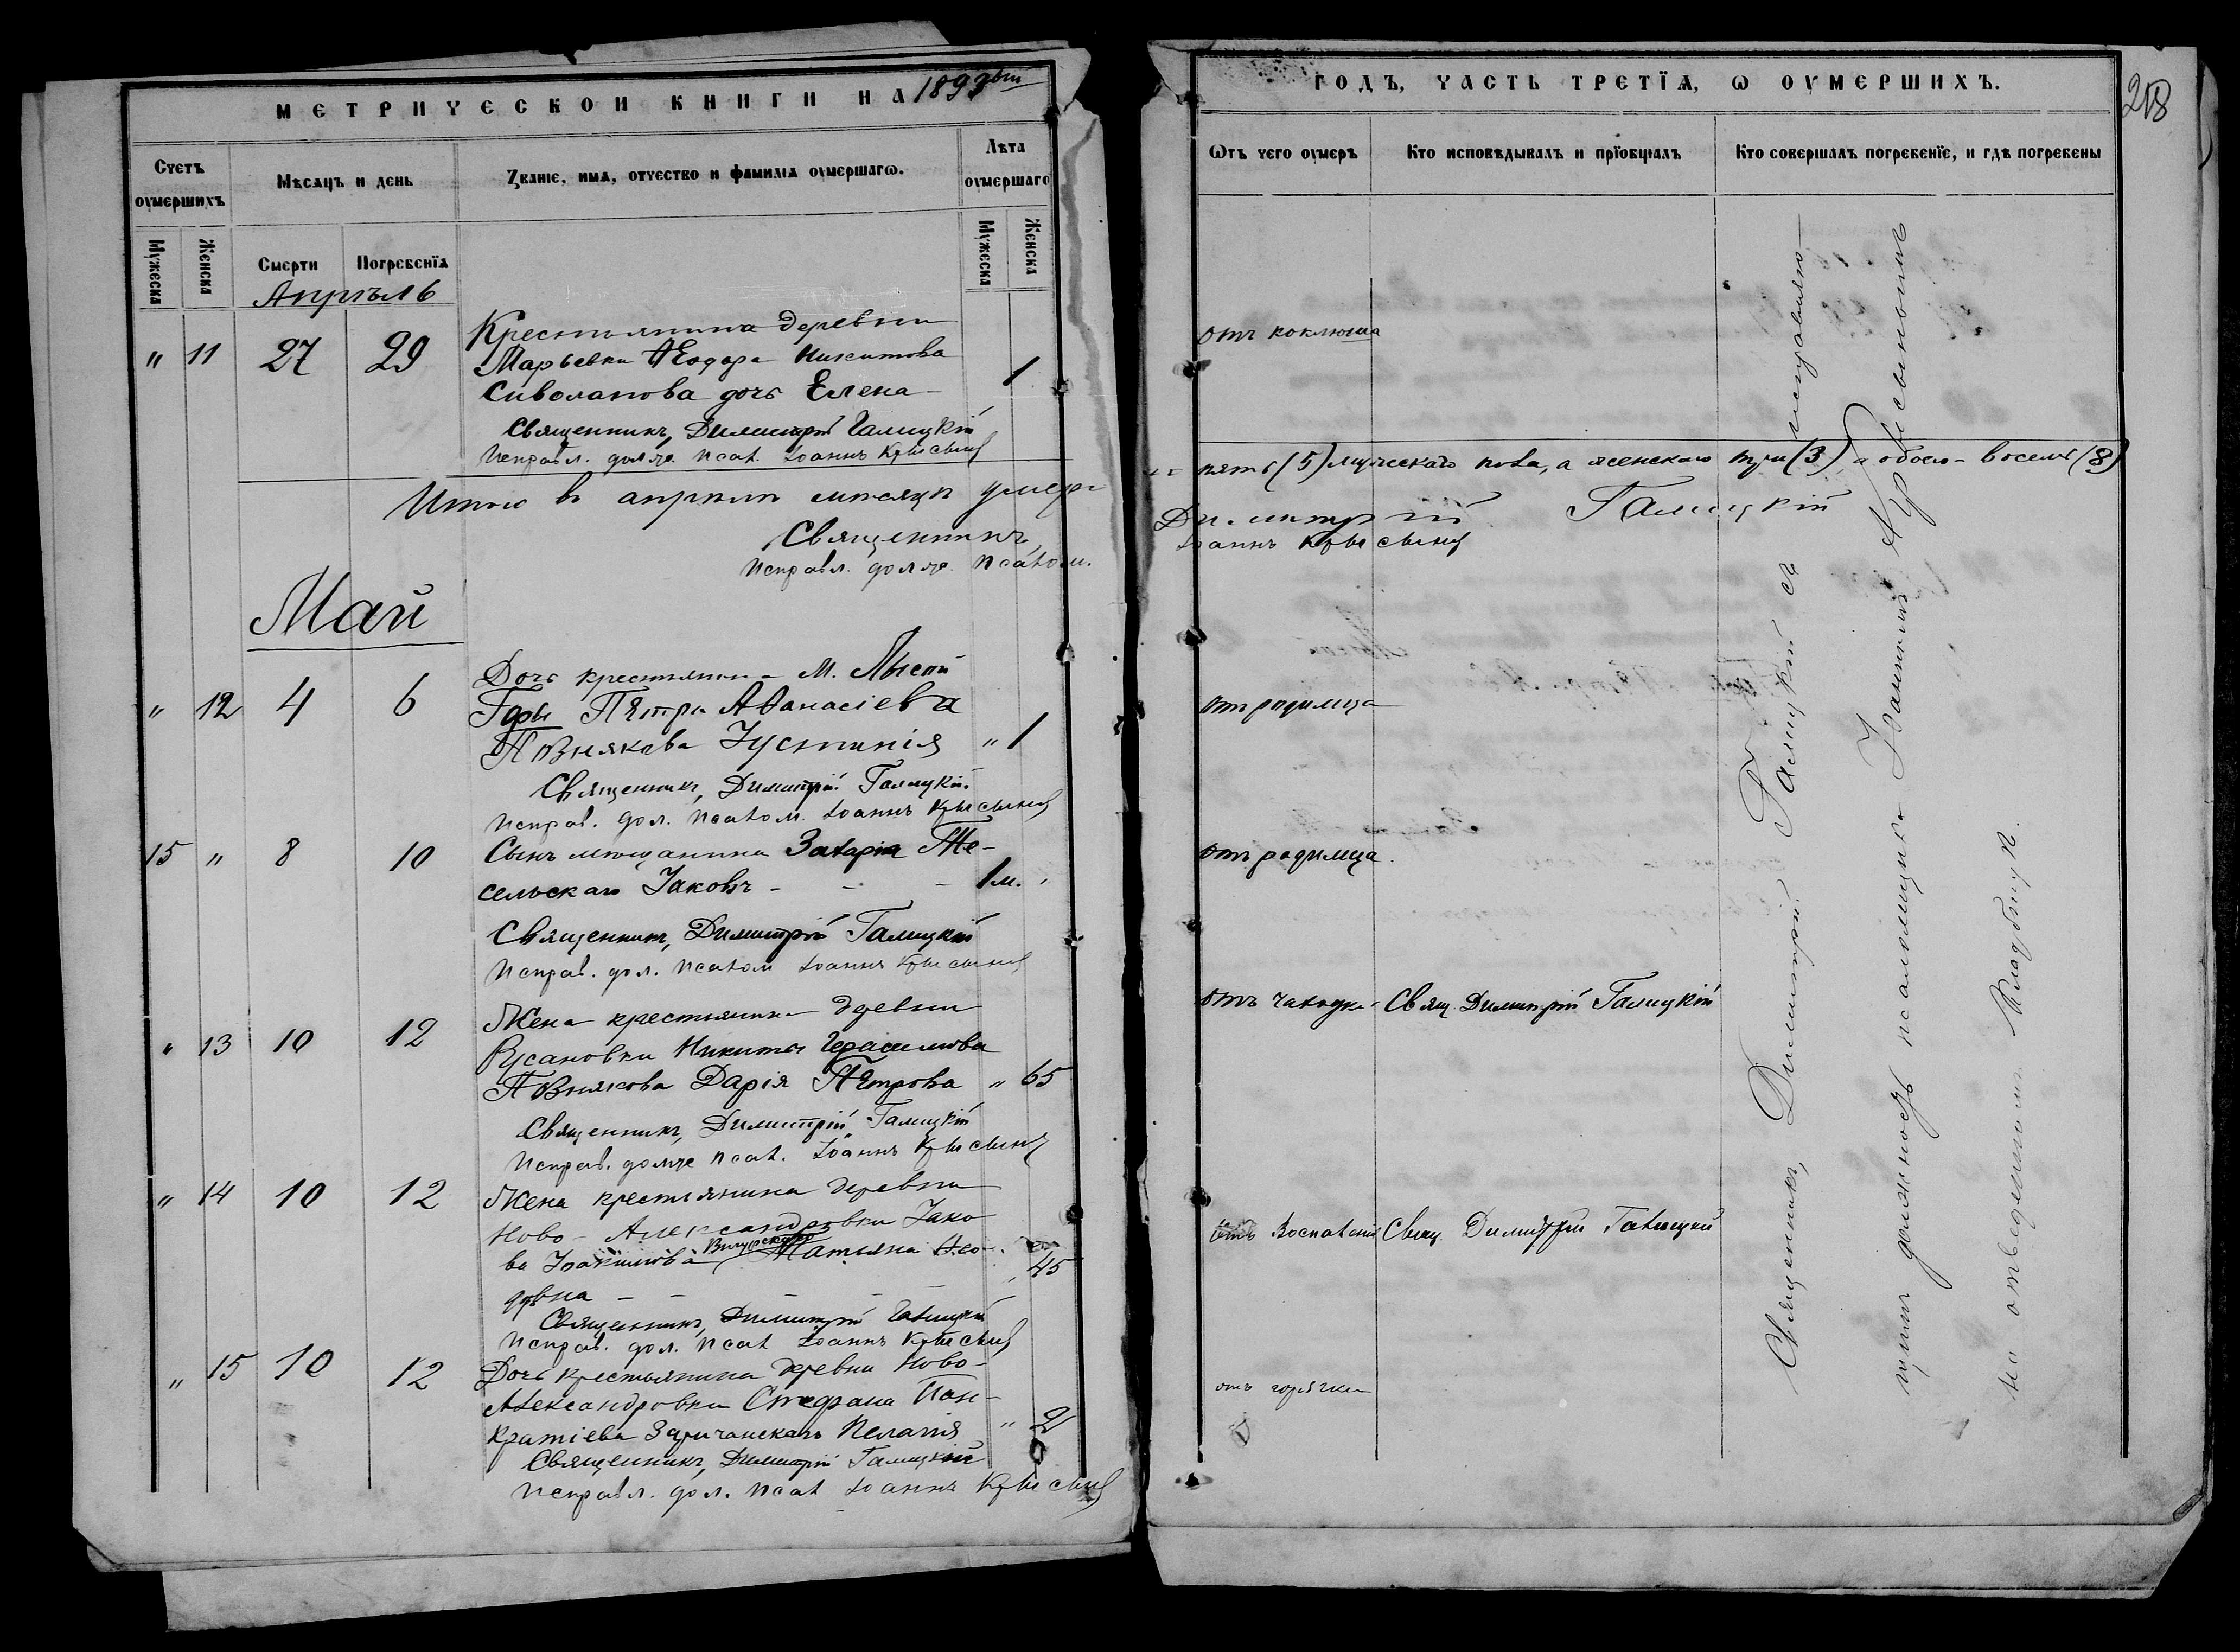 МЕТРИЧЕСКОЙ КНИГИ НА 1893
Счетъ оумершихъ
Мѣсяцъ и день
Званіе, имя, отчество и фамилія оумершагѡ.
Лѣта оумершаго
Мужеска
Женска
Смерти
Погребенїя
Мужеска
Женска
Апрѣль
" 11 27 29 Крестьянина деревни
Марьевки Ѳеодора Никитова
Сиволапова дочь Елена - 1
Священникъ, Димитрій Галицкій
Исправл. долж. псал. Іоаннъ
Итого в апрѣлѣ мѣсяцѣ умерло
Священникъ,
Исправл. долж. псалом.
Май
" 12 4 6 Дочь крестьянина М. Лысой
Горы Петра Аѳанасіева
Познякова Іустинія " 1
Священникъ, Димитрій Галицкій.
Исправ. дол. псалом. Іоаннъ
15 " 8 10 Сынъ мѣщанина Захарія Те-
сельскаго Іаковъ - - - 1 м.
Священникъ, Димитрій Галицкій
Исправ. дол. псалом Іоаннъ
" 13 10 12 Жена крестьянина деревни
Русановки Никиты Герасимова
Познякова Дарія Петрова " 65
Священникъ, Димитрій Галицкій
Исправ. долж псал. Іоаннъ
" 14 10 12 Жена крестьянина деревни
Ново-Александровки Іако
ва Іоакимова Татьяна Ѳео- 45
дрвна - - - -
Священникъ, Димитрій Галицкій
Исправ. дол. псал Іоаннъ
" 15 10 12 Дочь крестьянина деревни Ново-
Александровки Стефана Пан-
кратіева Заричанскаго Пелагія " 2
Священникъ, Димитрій Галицкій
Исправл. дол. псал Іоаннъ
ГОДЪ, ЧАСТЬ ТРЕТЇѦ, Ѡ ОУМЕРШИХЪ.
218
Ѿтъ чего оумеръ
Кто исповѣдывалъ и прїобщалъ
Кто совершалъ погребенїе, и гдѣ погребены
отъ коклюша
пять (5) мужескаго пола, а женскаго три (3), а обоего - восемь (8)
Димитрій Галицкій
Іоаннъ
отъ родимца
отъ родимца.
отъ чахотки Свящ. Димитрій Галицкій
отъ Воспаленія Свящ. Димитрій Галицкій
отъ горячки
Священникъ, Димитрій Галицкій съ исправляю-
щимъ должность псаломщика Іоанномъ
на отведенномъ кладбищѣ.